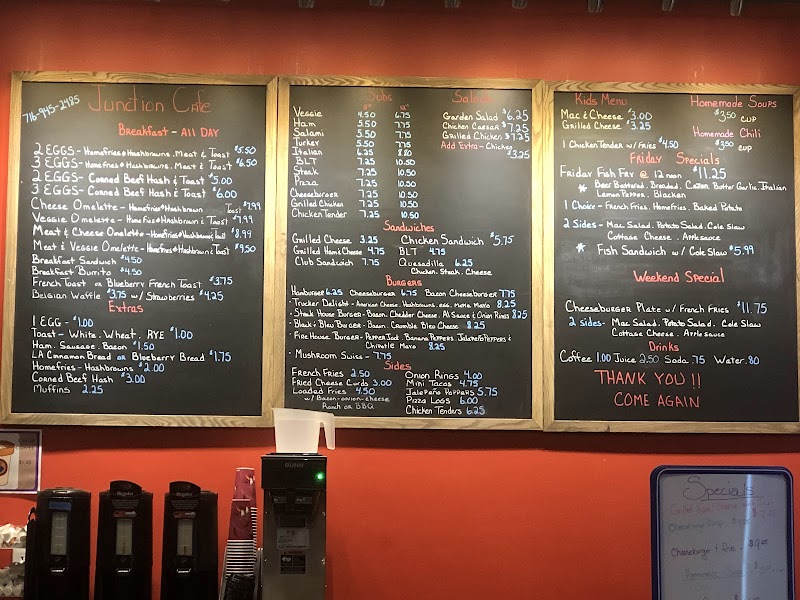 716-945-2485
Junction Cafe
Breakfast - All DAY
2 EGGS - Homefries or Hashbrowns, Meat & Toast $5.50
3 EGGS - Homefries or Hashbrowns, Meat & Toast $6.50
2 EGGS - Corned Beef Hash & Toast $5.00
3 EGGS - Corned Beef Hash & Toast $6.00
Cheese Omelette - Homefries or Hashbrowns Toast $7.99
Veggie Omelette - Homefries or Hashbrowns & Toast $7.99
Meat & Cheese Omelette - Homefries or Hashbrowns & Toast $8.99
Meat & Veggie Omelette - Homefries or Hashbrowns & Toast $9.50
Breakfast Sandwich $4.50
Breakfast Burrito $4.50
French Toast or Blueberry French Toast $3.75
Belgian Waffle $3.75 w/ Strawberries $4.25
Extras
1 EGG - $1.00
Toast - White, Wheat, RYE $1.00
Ham, Sausage, Bacon $1.50
LA Cinnamon Bread or Blueberry Bread $1.75
Homefries - Hashbrowns $2.00
Corned Beef Hash $3.00
Muffins 2.25
Subs
Veggie 4.50 6.75
Ham 5.50 7.75
Salami 5.50 7.75
Turkey 5.50 7.75
Italian 6.25 8.80
BLT 7.25 10.50
Steak 7.25 10.50
Pizza 7.25 10.50
Cheeseburger 7.25 10.50
Grilled Chicken 7.25 10.50
Chicken Tender 7.25 10.50
Salads
Garden Salad $6.25
Chicken Caesar $7.25
Grilled Chicken $7.25
Add Extra - Chicken
$3.25
Sandwiches
Grilled Cheese 3.25 Chicken Sandwich $5.75
Grilled Ham & Cheese 4.75 BLT 4.75
Club Sandwich 7.75 Quesadilla 6.25
Chicken, Steak, Cheese
Burgers
Hamburger 6.25 Cheeseburger 6.75 Bacon Cheeseburger 7.75
• Trucker Delight - American Cheese, Hashbrowns, egg, Maple Mayo 8.25
• Steak House Burger - Bacon, Cheddar Cheese, A1 Sauce & Onion Rings 8.25
• Black & Bleu Burger - Bacon, Crumble Bleu Cheese 8.25
• Fire House Burger - PepperJack, Banana Peppers, Jalapeño Peppers &
Chipotle Mayo 8.25
• Mushroom Swiss - 7.75
Sides
French Fries 2.50
Fried Cheese Curds 3.00
Loaded Fries 4.50
w/ Bacon-onion-cheese
Ranch or BBQ
Onion Rings 4.00
Mini Tacos 4.75
Jalapeño Poppers 5.75
Pizza Logs 6.00
Chicken Tenders 6.25
Kids Menu
Mac & Cheese $3.00
Grilled Cheese $3.25
1 Chicken Tender w/ Fries $4.50
Homemade Soups
$3.50 CUP
Homemade Chili
$3.50 CUP
Friday Specials
Friday Fish Fry @ 12 noon $11.25
* Beer Battered, Breaded, Cajun, Butter Garlic, Italian
Lemon Pepper, Blacken
1 Choice - French Fries, Homefries, Baked Potato
2 Sides - Mac Salad, Potato Salad, Cole Slaw
Cottage Cheese, Applesauce
* Fish Sandwich w/ Cole Slaw $5.99
Weekend Special
Cheeseburger Plate w/ French Fries $11.75
2 sides - Mac Salad, Potato Salad, Cole Slaw
Cottage Cheese, Applesauce
Drinks
Coffee 1.00 Juice 2.50 Soda .75 Water .80
THANK YOU !!
COME AGAIN
BUNN
Specials